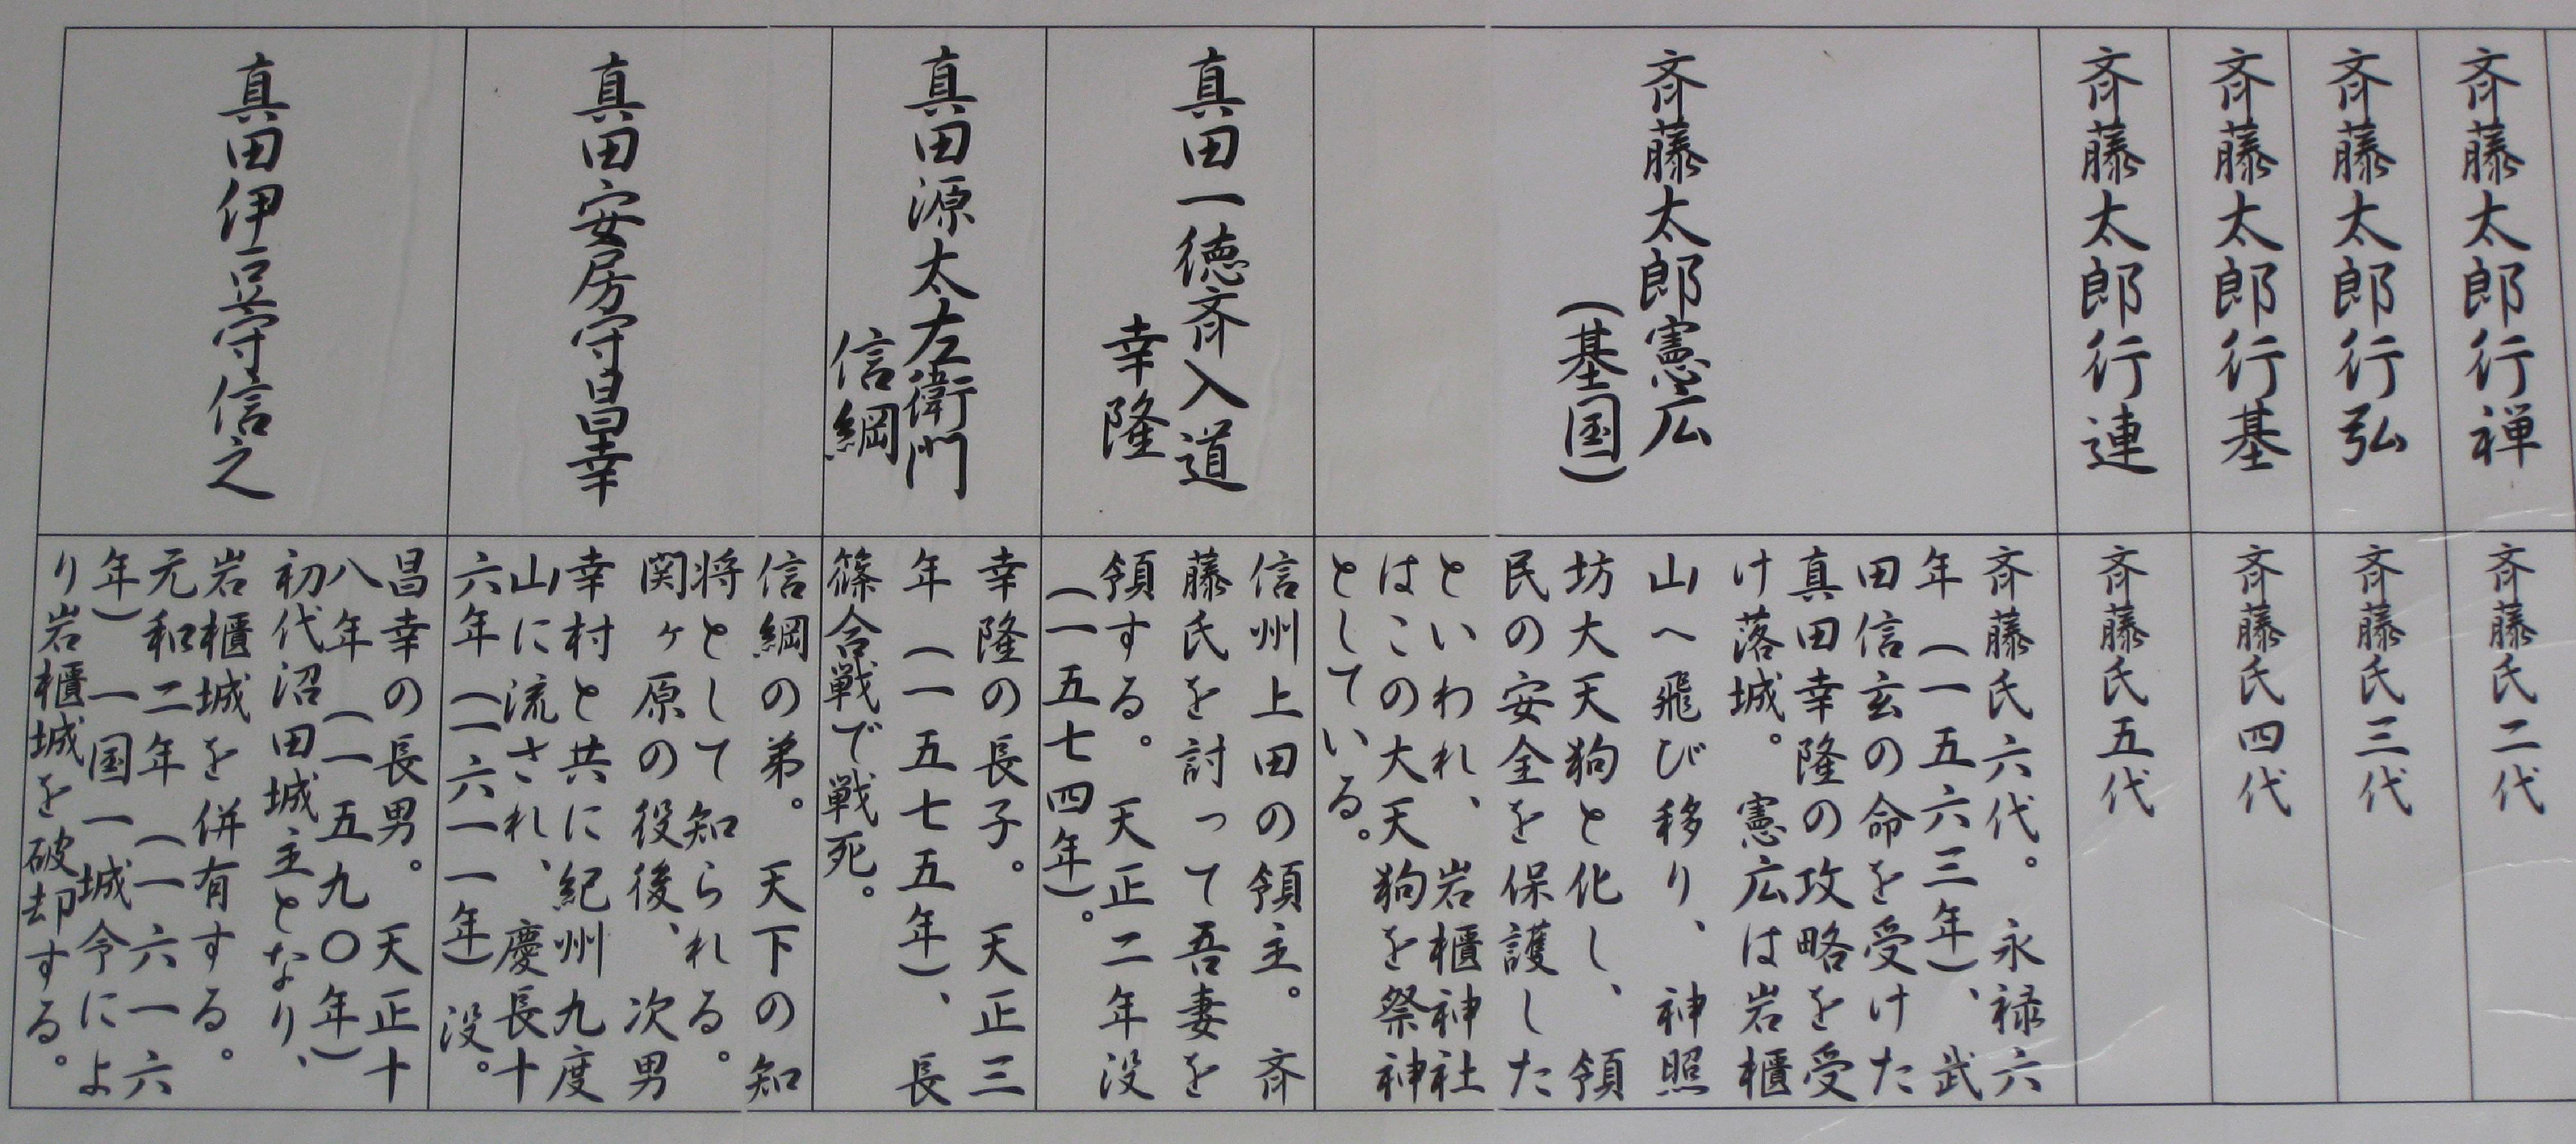 斉藤太郎行禅
斉藤氏二代
斉藤太郎行弘
斉藤氏三代
斉藤太郎行基
斉藤氏四代
斉藤太郎行連
斉藤氏五代
斉藤太郎憲広
(基国)
斉藤氏六代。永禄六
年(一五六三年)、武
田信玄の命を受けた
真田幸隆の攻略を受
け落城。憲広は岩櫃
山へ飛び移り、神照
坊大天狗と化し、領
民の安全を保護した
といわれ、岩櫃神社
はこの大天狗を祭神
としている。
真田一徳斉入道
幸隆
信州上田の領主。斉
藤氏を討って吾妻を
領する。天正二年没
(一五七四年)。
真田源太左衛門
信綱
幸隆の長子。天正三
年(一五七五年)、長
篠合戦で戦死。
真田安房守昌幸
信綱の弟。天下の知
将として知られる。
関ヶ原の役後、次男
幸村と共に紀州九度
山に流され、慶長十
六年(一六一一年)没。
真田伊豆守信之
昌幸の長男。天正十
八年(一五九〇年)
初代沼田城主となり、
岩櫃城を併有する。
元和二年(一六一六
年)一国一城令によ
り岩櫃城を破却する。